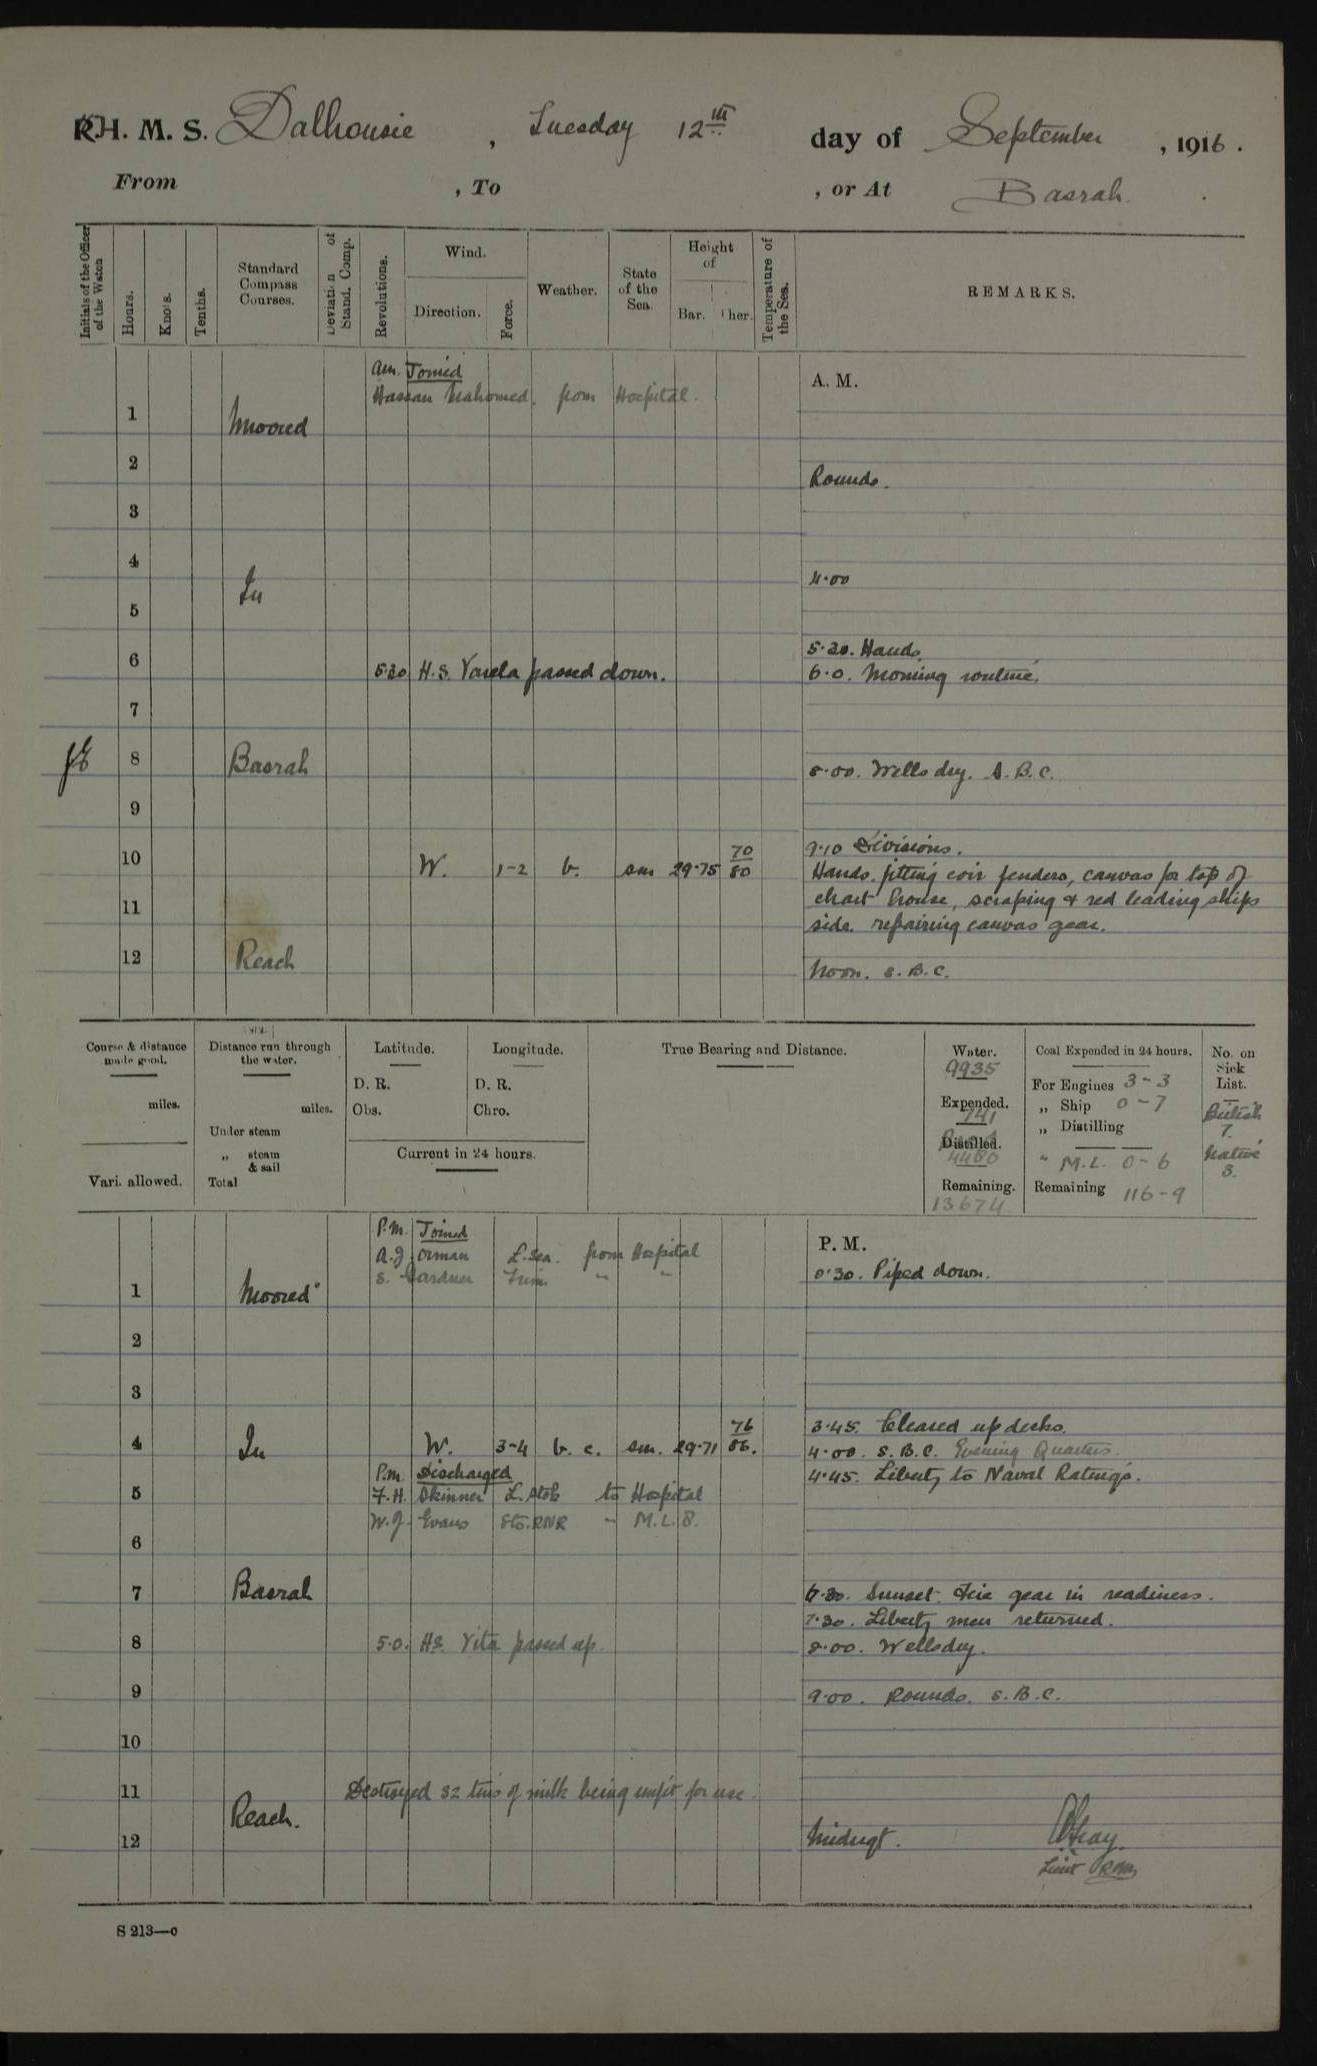 R.H. M. S. Dalhousie, Tuesday 12th day of September, 1916.
From , To , or At Basrah.
Initials of the Officer of the Watch
Hours.
Knots.
Tenths.
Standard Compass Courses.
Deviation of Stand. Comp.
Revolutions.
Wind.
Direction.
Force.
Weather.
State of the Sea.
Height of
Bar. Ther.
Temperature of the Sea.
REMARKS.
am. Joined
A. M.
Hassan Mahomed. from Hospital.
1 Moored
2
Rounds.
3
4
4.00
In
5
5.30. Hands.
6 5.20 H.S. Varela passed down. 6.0. Morning routine.
7
8 Basrah
8.00. Wells dry. S.B.C.
9
9.10 Divisions.
10 W. 1-2 b. sm 29.75 70/80 Hands fitting coir fenders, canvas for top of
11 chart house, scraping & red leading ships
side. repairing canvas gear.
12 Reach
Noon. S.B.C.
Course & distance made good.
miles.
Vari. allowed.
Distance run through the water.
miles.
Under steam
„ steam & sail
Total
Latitude.
D. R.
Obs.
Longitude.
D. R.
Chro.
Current in 24 hours.
True Bearing and Distance.
Water.
9935
Expended.
741
Distilled.
4480
Remaining.
13674
Coal Expended in 24 hours.
For Engines 3-3
„ Ship 0-7
„ Distilling
" M.L. 0-6
Remaining 116-9
No. on Sick List.
British
7.
Native
3.
P.M. Joined
P. M.
A.J. Orman L.Sea. from Hospital
0.30. Piped down.
S. Gardner Trim. " "
1 Moored
2
3
3.45. Cleared up decks.
4 In W. 3-4 b.c. sm. 29.71 76/86. 4.00. S.B.C. Evening Quarters.
P.m. Discharged
4.45. Liberty to Naval Ratings.
5 F.H. Skinner L.Stok to Hospital
W.J. Evans Sto.RNR " M.L. 8.
6
7 Basrah 6.30. Sunset. Fire gear in readiness.
7.30. Liberty men returned.
8 5.0. H.S. Vita passed up. 8.00. Wells dry.
9
9.00. Rounds. S.B.C.
10
11 Destroyed 32 tins of milk being unfit for use.
Reach.
12 Midngt.
Lieut RIM
S 213—c